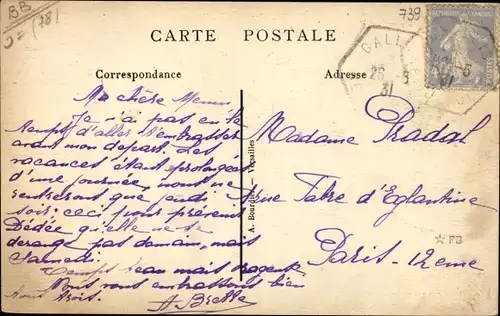 BB
D = (78)
739
CARTE POSTALE
Correspondance
Adresse
GALL
31
Ma chère Meme
Je n'ai pas eu le
temps d'aller t'embrasser
avant mon départ. Les
vacances étant prolongées
d'une journée, nous ne
rentrerons que jeudi
soir; ceci pour prévenir
Dédée qu'elle ne se
dérange pas demain, mais
samedi.
Temps beau mais
Nous vous embrassons bien
tous trois.
Madame Pradal
rue Fabre d'Eglantine
Paris - 12eme
A. Bourdier
FB